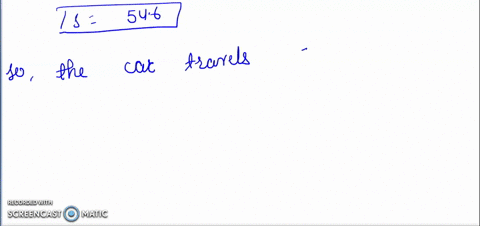 s = 546
so, the cat travels
RECORDED WITH
SCREENCAST MATIC